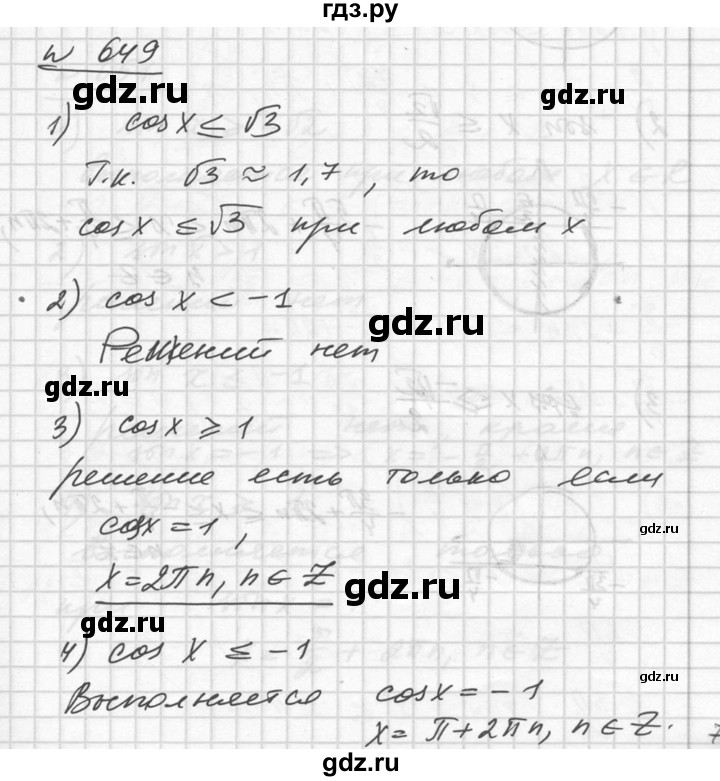 гдз.ру
N 649
gdz.ru
gdz.ru
1) cos x ≤ √3
Т.к. √3 ≈ 1,7, то
gdz.ru
cos x ≤ √3 при любом x
2) cos x < -1
gdz.ru
Решений нет
gdz.ru
3) cos x ≥ 1
решение есть только если
cos x = 1,
gdz.ru
x = 2πn, n ∈ Z
gdz.ru
gdz.ru
4) cos x ≤ -1
gdz.ru
Выполняется cos x = -1
x = π + 2πn, n ∈ Z.